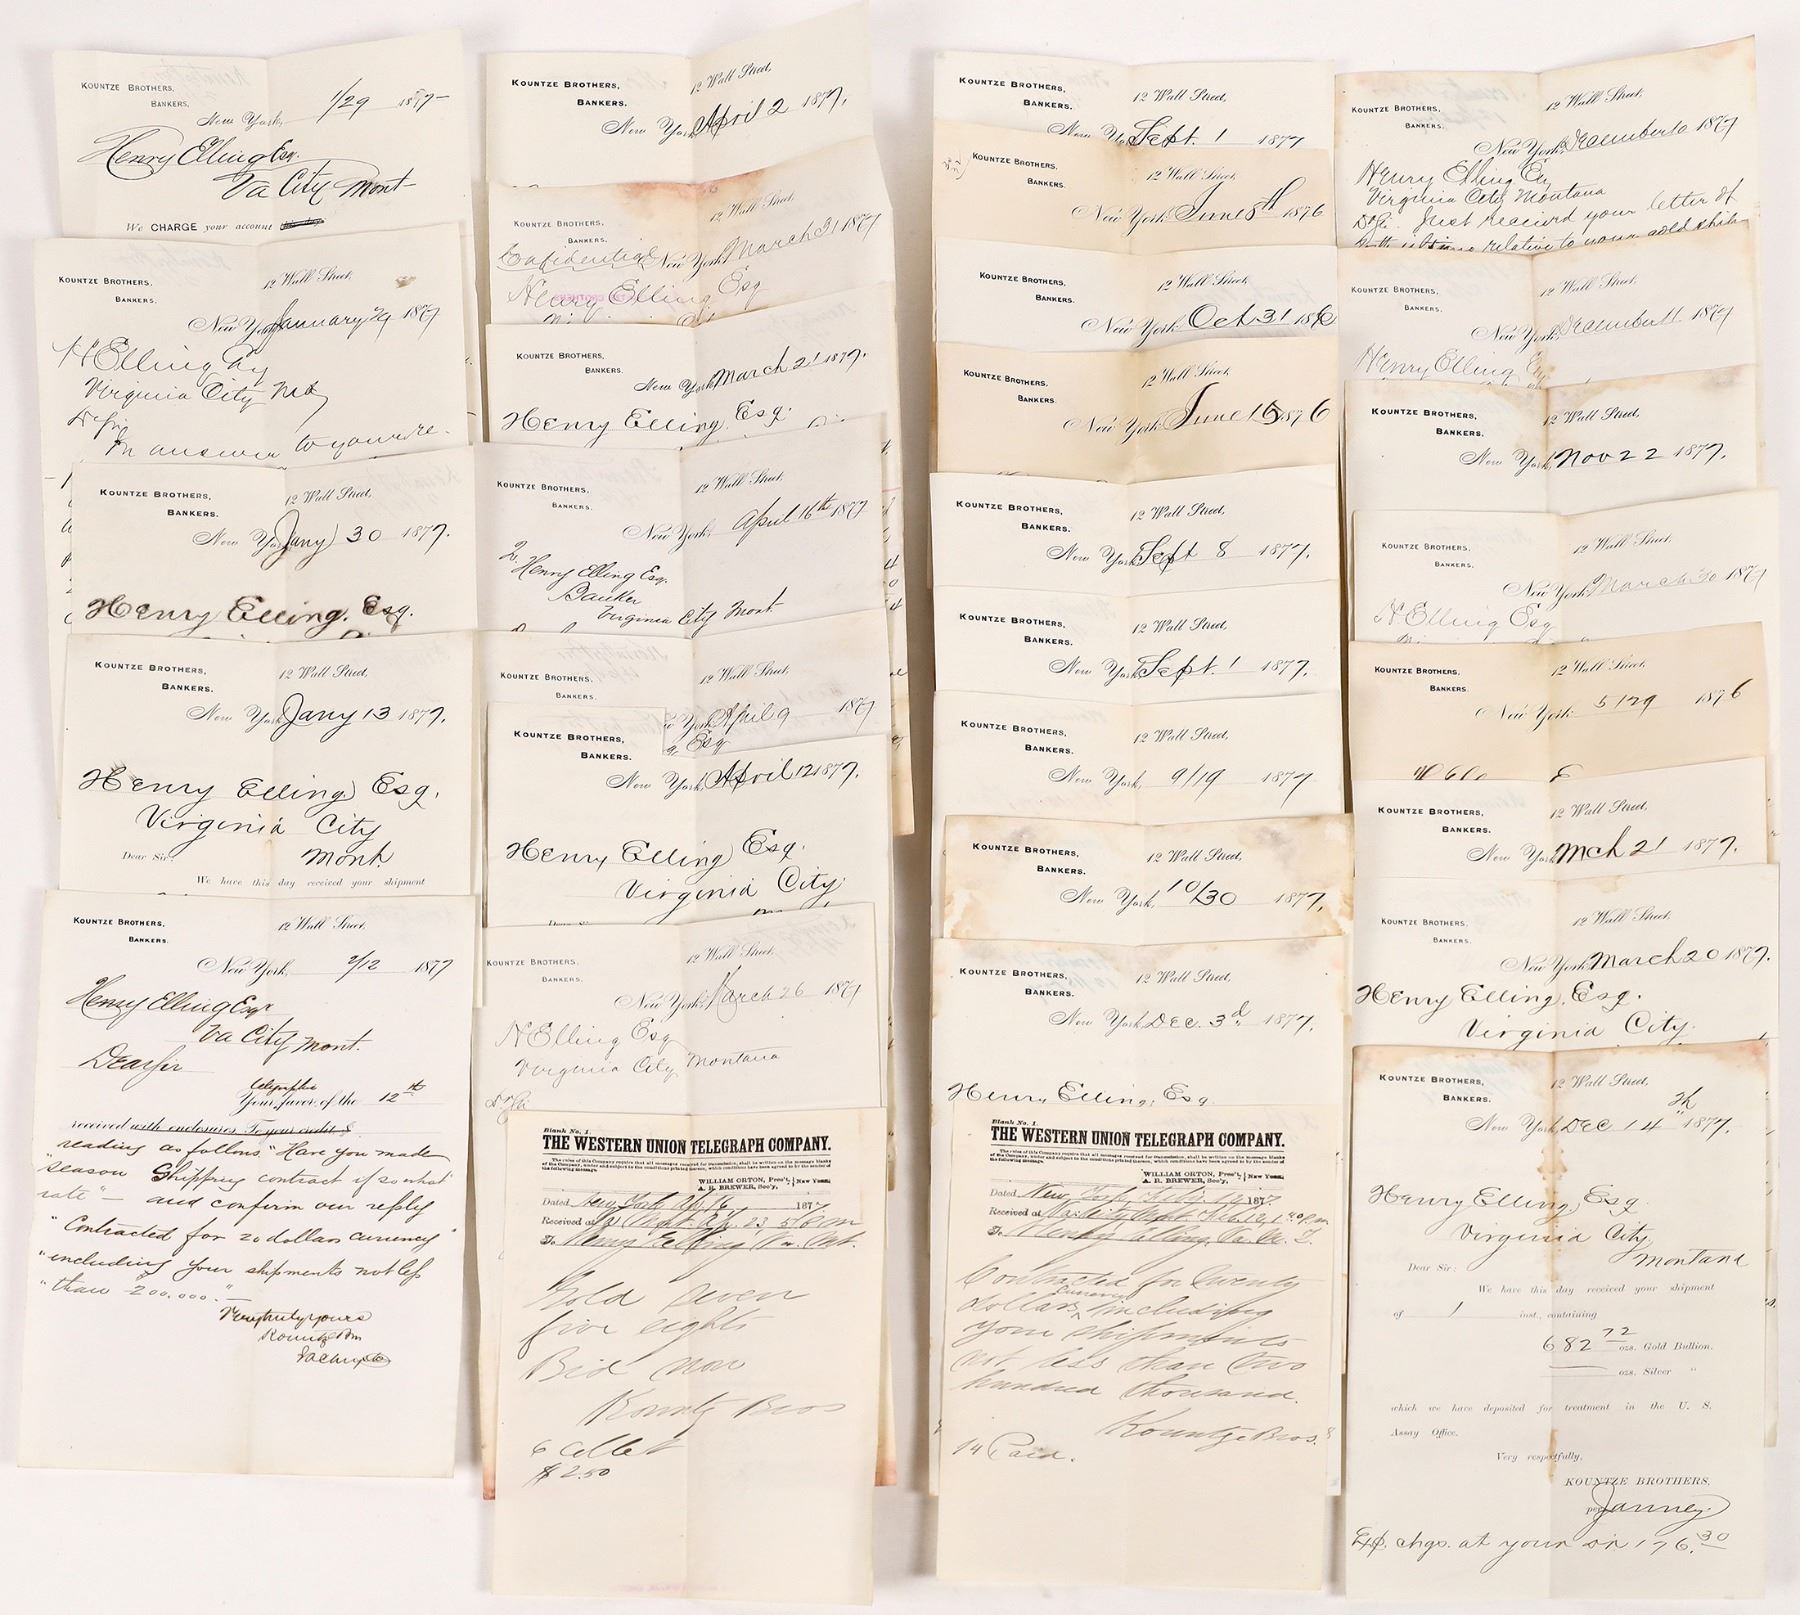 KOUNTZE BROTHERS,
BANKERS.
New York, 1/29 1877
Henry Elling Esq.
Va City Mont
We CHARGE your account
KOUNTZE BROTHERS,
BANKERS.
12 Wall Street,
New York January 29 1877
H Elling Esq
Virginia City
In answer to your
KOUNTZE BROTHERS,
BANKERS.
12 Wall Street,
New York Jany 30 1877.
Henry Elling. Esq.
KOUNTZE BROTHERS,
BANKERS.
12 Wall Street,
New York Jany 13 1877.
Henry Elling Esq.
Virginia City
Mont.
Dear Sir:
We have this day received your shipment
KOUNTZE BROTHERS,
BANKERS.
12 Wall Street,
New York, 2/12 1877
Henry Elling Esqr
Va City Mont.
Dear Sir
telegraphic
Your favor of the 12th
received with enclosures. To your credit $
reading as follows. "Have you made
"season Shipping contract if so what
rate" — and confirm our reply
"Contracted for 20 dollars currency
"including your shipments not less
"than $200,000."—
Very truly yours
Kountze Bros
KOUNTZE BROTHERS,
BANKERS.
12 Wall Street,
New York April 2 1877.
KOUNTZE BROTHERS,
BANKERS.
12 Wall Street,
Confidential New York March 31 1877
Henry Elling Esq
KOUNTZE BROTHERS,
BANKERS.
New York March 21 1877.
Henry Elling Esq.
KOUNTZE BROTHERS,
BANKERS.
12 Wall Street,
New York April 16th 1877
Henry Elling Esq.
Banker
Virginia City Mont.
KOUNTZE BROTHERS,
BANKERS.
12 Wall Street,
York April 9 1877
Esq
KOUNTZE BROTHERS,
BANKERS.
New York April 12 1877.
Henry Elling Esq.
Virginia City
KOUNTZE BROTHERS,
BANKERS.
12 Wall Street,
New York March 26 1877
H Elling Esq
Virginia City Montana
Blank No. 1.
THE WESTERN UNION TELEGRAPH COMPANY.
The rules of this Company require that all messages received for transmission, shall be written on the message blanks
of the Company, under and subject to the conditions printed thereon, which conditions have been agreed to by the sender of
the following message.
WILLIAM ORTON, Pres't,
A. R. BREWER, Sec'y, New York.
Dated New York 187
Received at
To Henry Elling
Gold seven
five eights
Bid now
Kountz Bros
6 Collect
$2.50
KOUNTZE BROTHERS,
BANKERS.
12 Wall Street,
New York Sept. 1 1877
KOUNTZE BROTHERS,
BANKERS.
12 Wall Street,
New York June 8th 1876
KOUNTZE BROTHERS,
BANKERS.
12 Wall Street,
New York Oct 31 1876
KOUNTZE BROTHERS,
BANKERS.
12 Wall Street,
New York June 16 1876
KOUNTZE BROTHERS,
BANKERS.
12 Wall Street,
New York Sept 8 1877.
KOUNTZE BROTHERS,
BANKERS.
12 Wall Street,
New York Sept. 1 1877.
KOUNTZE BROTHERS,
BANKERS.
12 Wall Street,
New York, 9/19 1877
KOUNTZE BROTHERS,
BANKERS.
12 Wall Street,
New York, 10/30 1877,
KOUNTZE BROTHERS,
BANKERS.
12 Wall Street,
New York Dec. 3d 1877.
Henry Elling, Esq.
Blank No. 1.
THE WESTERN UNION TELEGRAPH COMPANY.
The rules of this Company require that all messages received for transmission, shall be written on the message blanks
of the Company, under and subject to the conditions printed thereon, which conditions have been agreed to by the sender of
the following message.
WILLIAM ORTON, Pres't,
A. R. BREWER, Sec'y, New York
Dated New York 1877
Received at
To Henry Elling
Contracted for Twenty
dollars currency including
your shipments
not less than two
hundred thousand.
Kountze Bros.
14 Paid.
KOUNTZE BROTHERS,
BANKERS.
12 Wall Street,
New York December 10 1877
Henry Elling Esq
Virginia City Montana
Just received your letter of
relative to your gold ship
KOUNTZE BROTHERS,
BANKERS.
12 Wall Street,
New York December 11 1877
Henry Elling Esq
KOUNTZE BROTHERS,
BANKERS.
12 Wall Street,
New York Nov 22 1877.
KOUNTZE BROTHERS,
BANKERS.
12 Wall Street,
New York March 30 1877
H Elling Esq
KOUNTZE BROTHERS,
BANKERS.
12 Wall Street,
New York 5/29 1876
KOUNTZE BROTHERS,
BANKERS.
12 Wall Street,
New York Mch 21 1877.
KOUNTZE BROTHERS,
BANKERS.
12 Wall Street,
New York March 20 1877.
Henry Elling, Esq.
Virginia City.
KOUNTZE BROTHERS,
BANKERS.
12 Wall Street,
New York Dec 14th 1877.
Henry Elling, Esq
Virginia City,
Montana
Dear Sir:
We have this day received your shipment
of 1 inst., containing
682 72 ozs. Gold Bullion.
ozs. Silver "
which we have deposited for treatment in the U. S.
Assay Office.
Very respectfully,
KOUNTZE BROTHERS,
per Janney
Exp. chgs. at your dr 176.30